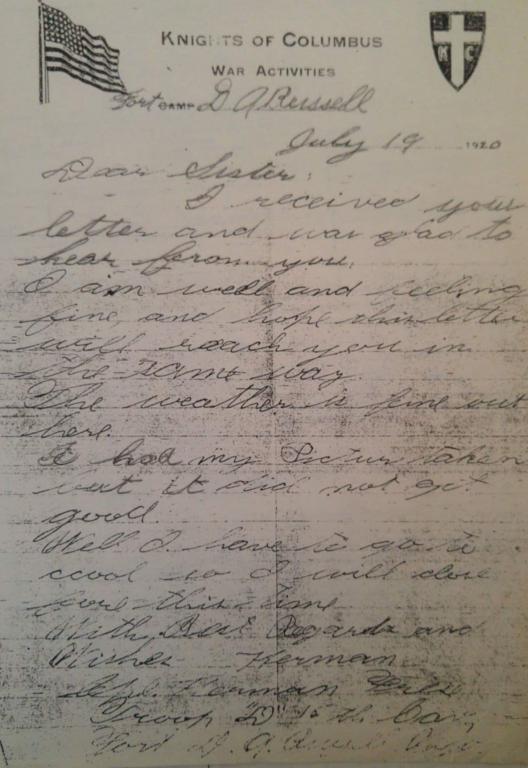 KNIGHTS OF COLUMBUS
K C
WAR ACTIVITIES
Fort CAMP D A Russell
July 19 1920
Dear Sister:
I received your
letter and was glad to
hear from you.
I am well and feeling
fine, and hope this letter
will reach you in
the same way
The weather is fine out
here.
I had my Pictur taken
but it did not get
good.
Well I have to go to
cool so I will close
fore this time
With Best Regards and
Wishes Herman
Herman
Troop "D" 15 th Cav,
Fort D. A.